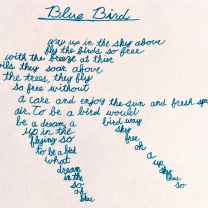 Blue Bird
way up in the sky above
fly the birds so free
with the breeze at their
they soar above
the trees, they fly
so free without
a care and enjoy the sun and fresh
air. To be a bird would
be a dream, a bird way
up in the sky
flying so free
to be a bird oh
what a
dream up
in the sky
so blue
as so
blue